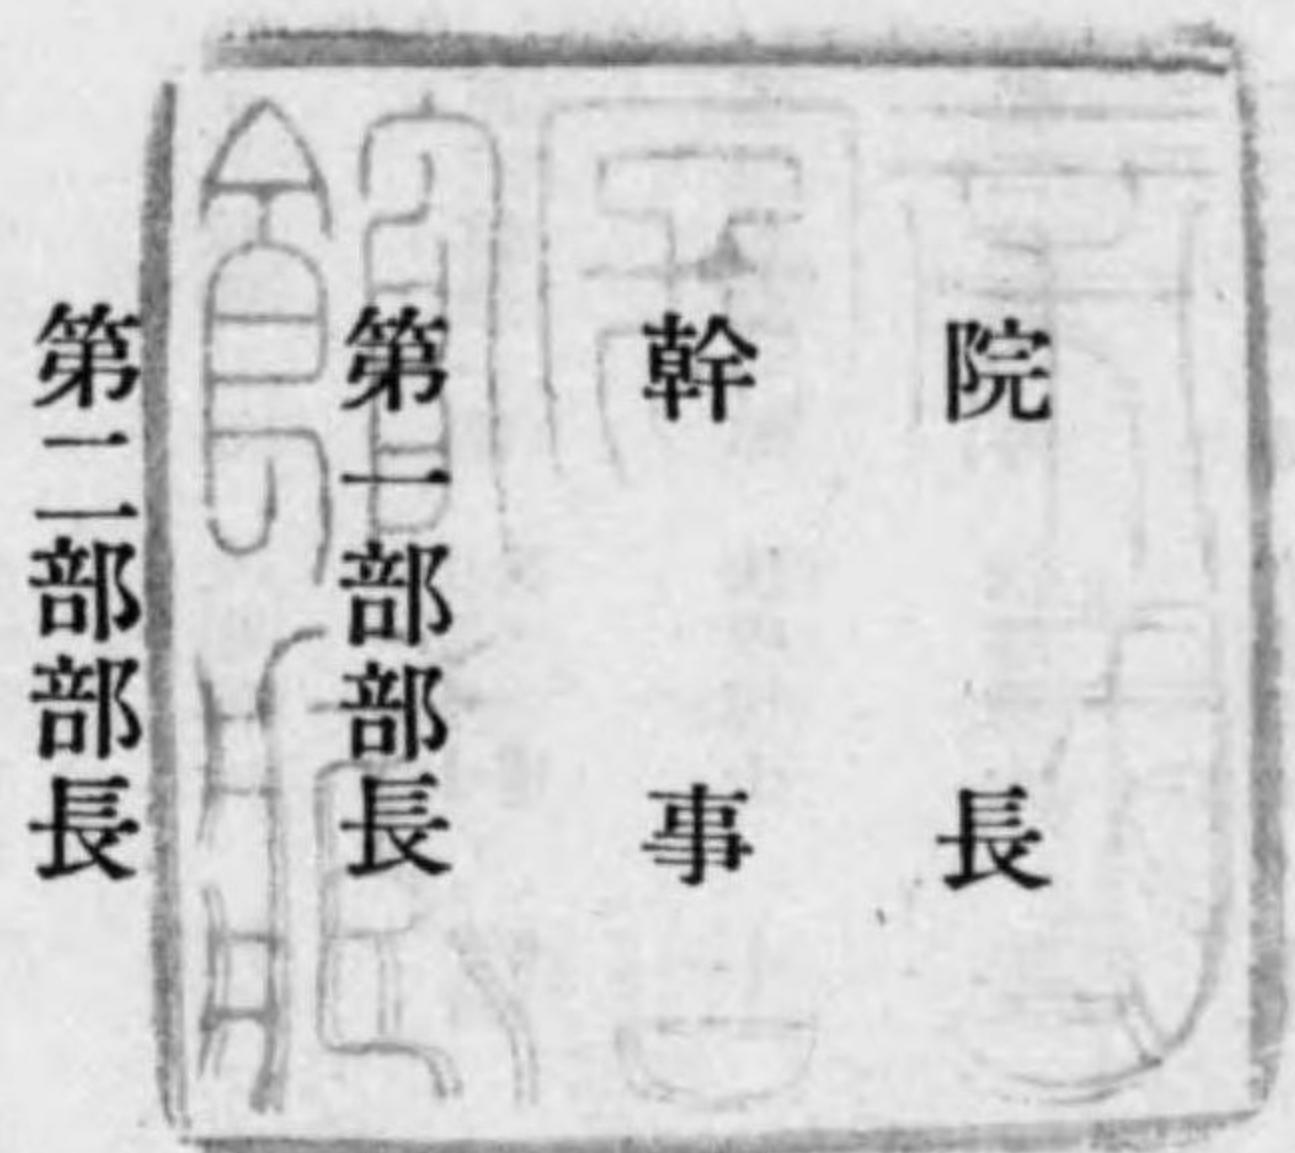 院長
幹事
第一部部長
第二部部長